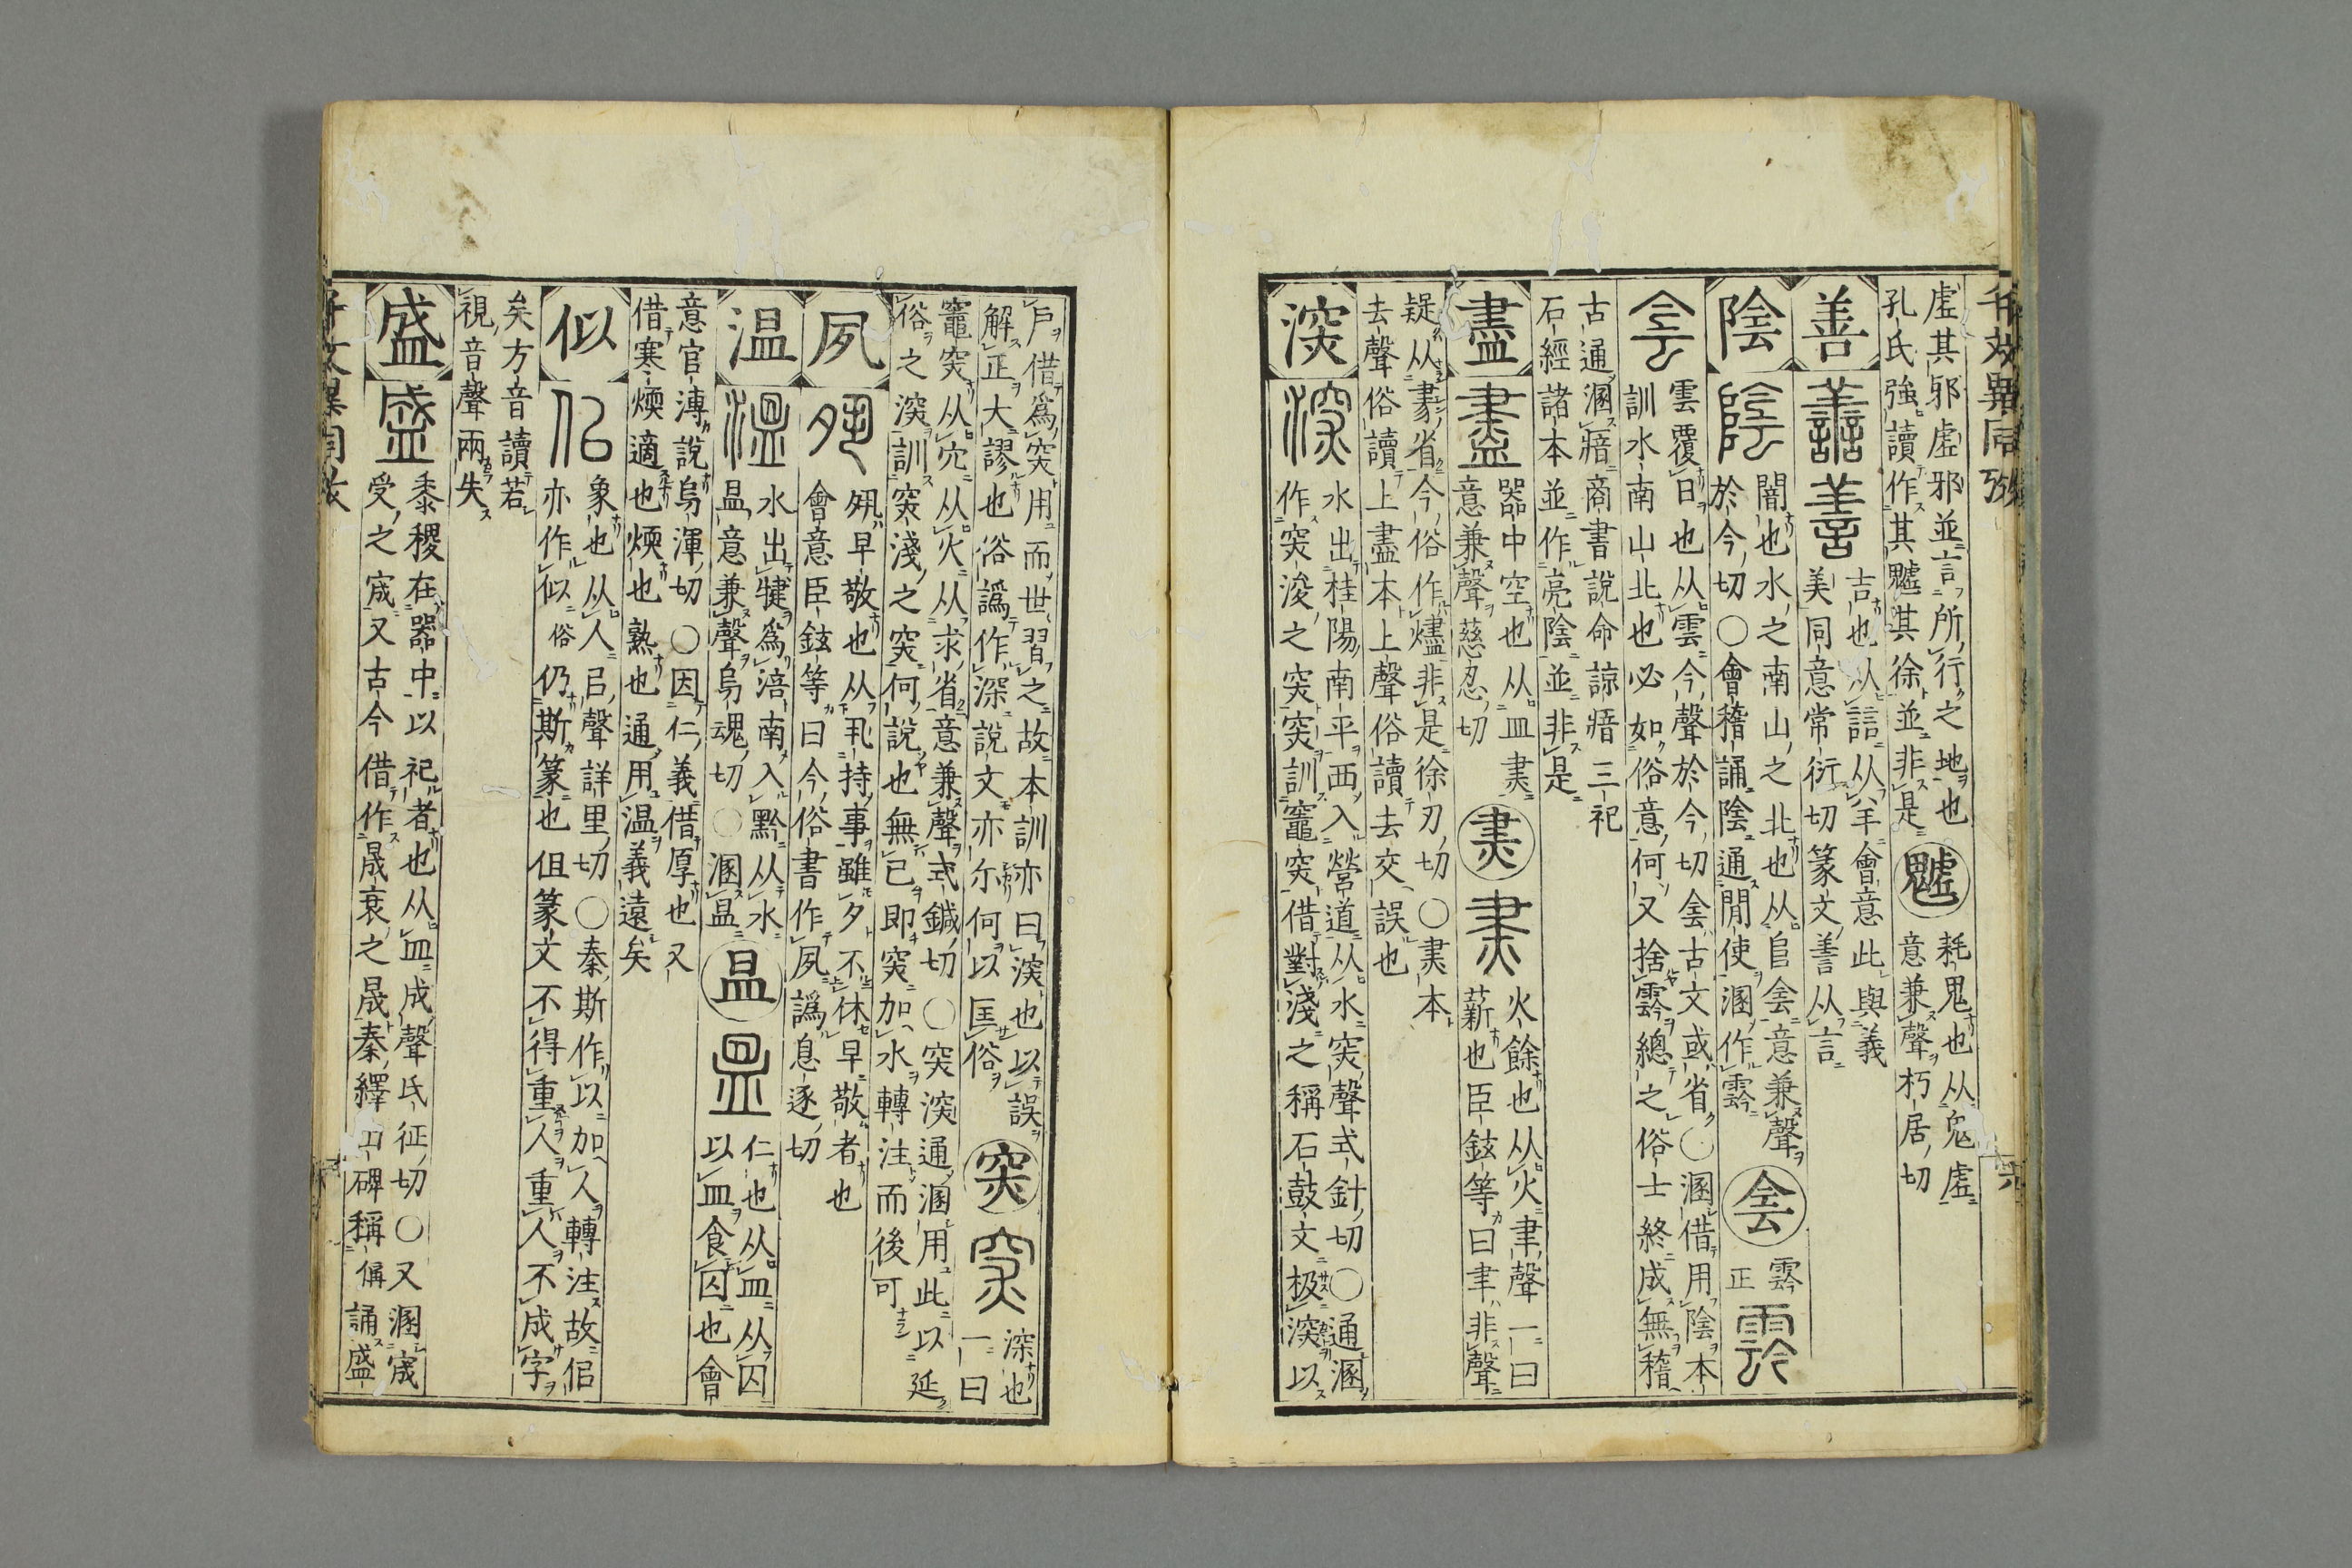 虛其邪虛邪並言所行之地也
孔氏強讀作其魖其徐並非是
魖
耗鬼也从鬼虛
意兼聲朽居切
善
吉也从誩从羊會意此與義
美同意常衍切篆文善从言
陰
闇也水之南山之北也从𨸏侌意兼聲
於今切○會稽誦陰通閒使溷作霒
侌
霒
正
雲覆日也从雲今聲於今切侌古文或省○溷借用陰本
訓水南山北也必如俗意何又捨霒總之俗士終成無稽
古通溷瘖商書說命諒瘖三祀
石經諸本並作亮陰並非是
盡
器中空也从皿㶳
意兼聲慈忍切
㶳
火餘也从火聿聲一曰
薪也臣鉉等曰聿非聲
疑从䨮省今俗作燼非是徐刃切○㶳本
去聲俗讀上盡本上聲俗讀去交誤也
㴱
水出桂陽南平西入營道从水突聲式針切○通溷
作突浚之突突訓竈突借對淺之稱石鼓文极㴱以
戶借爲突用而世習之故本訓亦曰㴱也以誤
解正大謬也俗譌作深說文亦尒何以匡俗
突
深也
一曰
竈突从穴从火从求省意兼聲式鍼切○突㴱通溷用此以延
俗之㴱訓突淺之突何說也無已即突加水轉注而後可
夙
㚈早敬也从丮持事雖夕不休早敬者也
會意臣鉉等曰今俗書作夙譌息逐切
温
水出犍爲涪南入黔从水
昷意兼聲烏魂切○溷昷
昷
仁也从皿从囚
以皿食囚也會
意官溥說烏渾切○因仁義借厚也又
借寒煗適也煗也熟也通用温義遠矣
似
象也从人㠯聲詳里切○秦斯作以加人轉注故㠯
亦作似俗仍斯篆也但篆文不得重人重人不成字
矣方音讀若
視音聲兩失
盛
黍稷在器中以祀者也从皿成聲氏征切○又溷宬
受之宬又古今借作晟衰之晟秦繹山碑稱偁誦盛